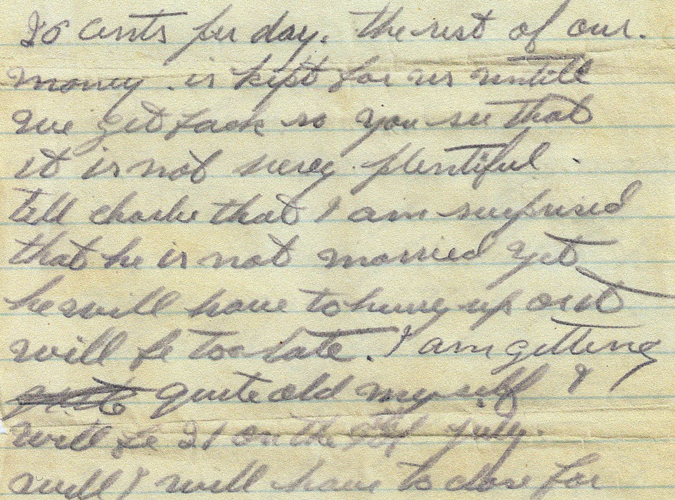 cents per day. the rest of our.
money. is kept for us untill
we get back so you see that
it is not verey plentiful.
tell charlie that I am surprised
that he is not married yet
he will have to hurry up or it
will be too late. I am getting
quite old my self I
will be 21 on the of july.
well I will have to close for